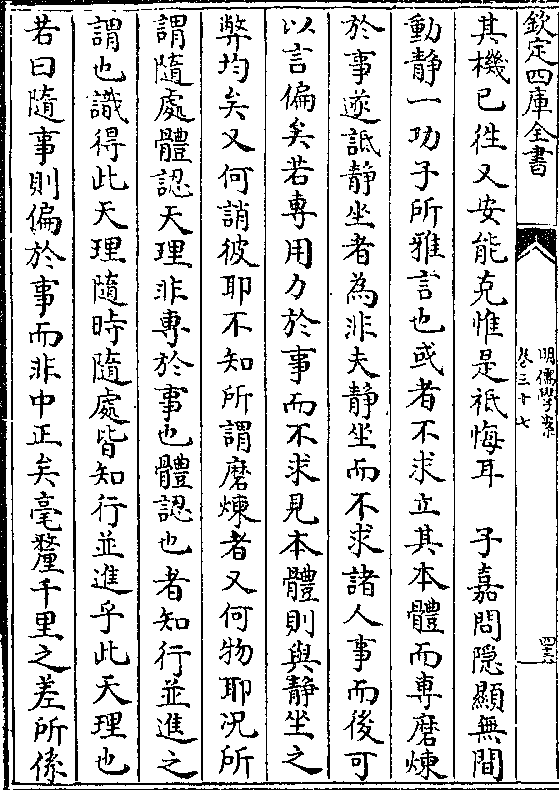 欽定四庫全書
明儒學案
卷三十七
其機已徃又安能克惟是祗悔耳　子嘉問隠顯無間
動静一功子所雅言也或者不求立其本體而專磨煉
於事遂詆静坐者為非夫静坐而不求諸人事而後可
以言偏矣若專用力於事而不求見本體則與静坐之
弊均矣又何誚彼耶不知所謂磨煉者又何物耶况所
謂隨處體認天理非專於事也體認也者知行並進之
謂也識得此天理隨時隨處皆知行並進乎此天理也
若曰隨事則偏於事而非中正矣毫釐千里之差所係